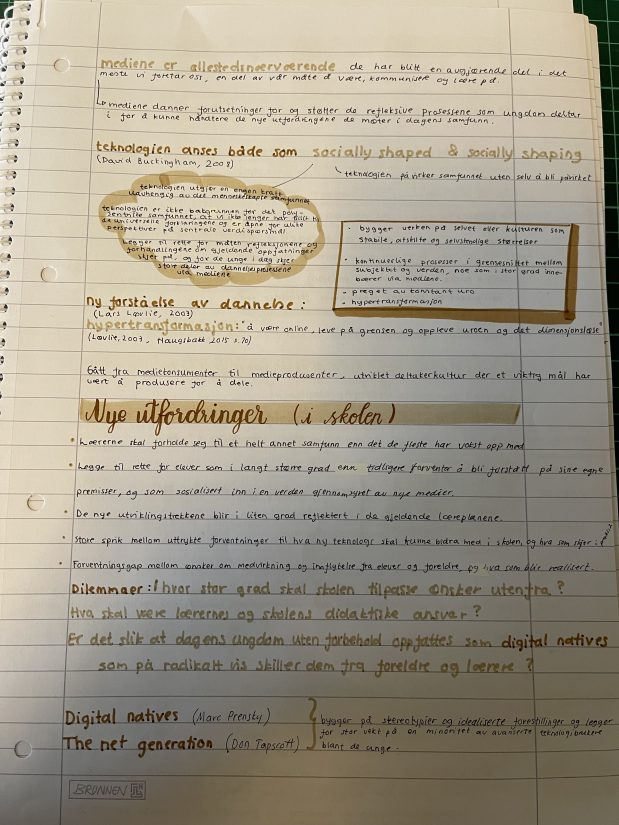 mediene er allestedsnærværende de har blitt en avgjørende del i det
meste vi foretar oss, en del av vår måte å være, kommunisere og lære på.
mediene danner forutsetninger for og støtter de refleksive prosessene som ungdom deltar
i for å kunne håndtere de nye utfordringene de møter i dagens samfunn.
teknologien anses både som socially shaped & socially shaping
(David Buckingham, 2008)
teknologien påvirker samfunnet uten selv å bli påvirket
teknologien utgjør en engen kraft
uavhengig av det menneskeskapte samfunnet
teknologien er ikke bakgrunnen for det poly-
sentriske samfunnet, at vi ikke lenger har tillit til
de universelle forklaringene og er åpne for ulike
perspektiver på sentrale verdispørsmål
Legger til rette for måten refleksjonene og
forhandlingene om gjeldende oppfatninger
skjer på, og for de unge i dag skjer
store deler av dannelsesprosessene
via mediene
• bygger verken på selvet eller kulturen som
stabile, atskilte og selvstendige størrelser
• kontinuerlige prosesser i grensesnittet mellom
subjektet og verden, noe som i stor grad inne-
bærer via mediene.
• preget av konstant uro
• hypertransformasjon
ny forståelse av dannelse:
(Lars Løvlie, 2003)
hypertransformasjon: "å være online, leve på grensen og oppleve uroen og det dimensjonsløse"
(Løvlie, 2003, Haugsbakk 2015 s.70)
Gått fra mediekonsumenter til medieprodusenter, utviklet deltakerkultur der et viktig mål har
vært å produsere for å dele.
Nye utfordringer (i skolen)
• Lærerne skal forholde seg til et helt annet samfunn enn det de fleste har vokst opp med
• Legge til rette for elever som i langt større grad enn tidligere forventer å bli forstått på sine egne
premisser, og som sosialisert inn i en verden gjennomsyret av nye medier.
• De nye utviklingstrekkene blir i liten grad reflektert i de gjeldende læreplanene.
• Store sprik mellom uttrykte forventninger til hva ny teknologi skal kunne bidra med i skolen, og hva som skjer i praksis
• Forventningsgap mellom ønsker om medvirkning og innflytelse fra elever og foreldre, og hva som blir realisert.
Dilemmaer: I hvor stor grad skal skolen tilpasse ønsker utenfra?
Hva skal være lærernes og skolens didaktiske ansvar?
Er det slik at dagens ungdom uten forbehold oppfattes som digital natives
som på radikalt vis skiller dem fra foreldre og lærere?
Digital natives (Marc Prensky)
The net generation (Don Tapscott)
bygger på stereotypier og idealiserte forestillinger og legger
for stor vekt på en minoritet av avanserte teknologibrukere
blant de unge.
BRUNNEN